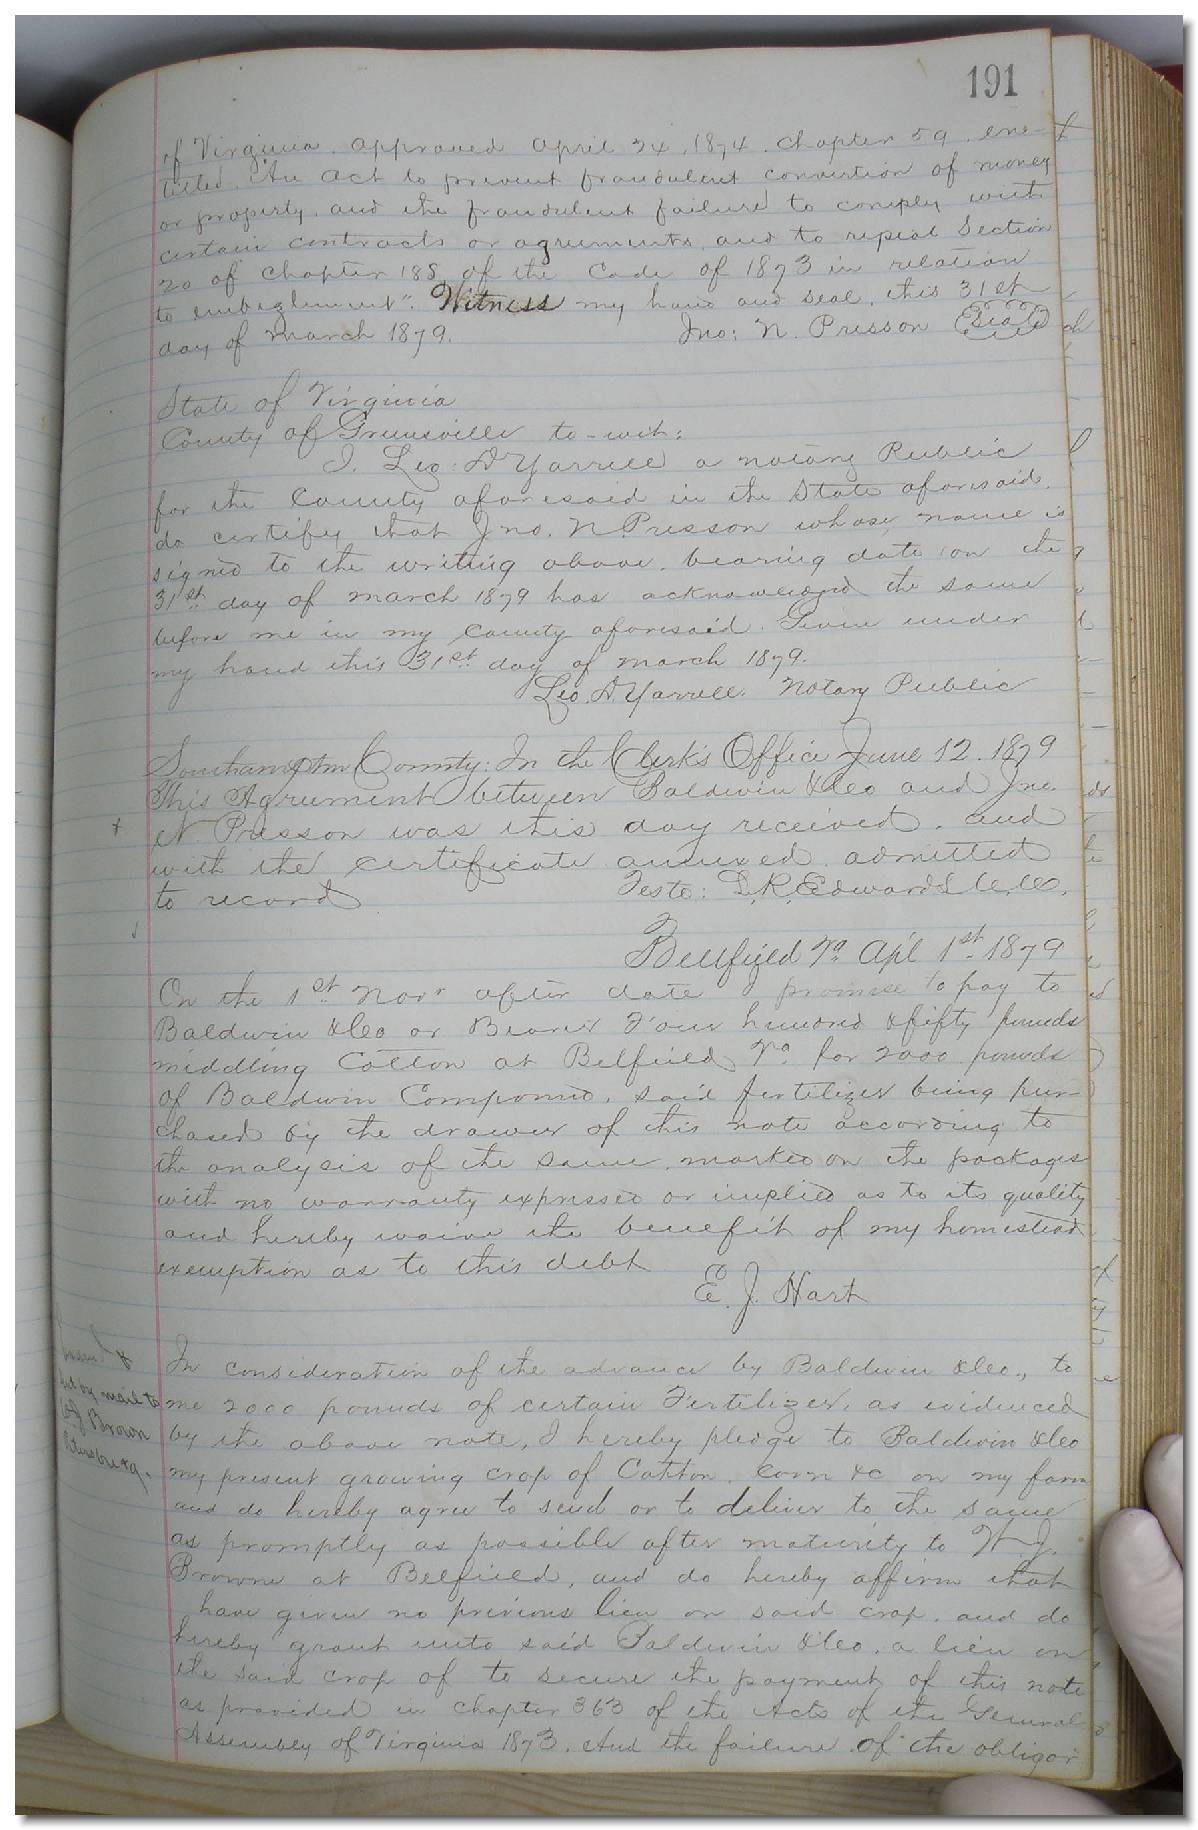 191
of Virginia. approved April 24, 1874. Chapter 59. en-
titled. An act to prevent fraudulent convertion of money
or property. and the fraudulent failure to comply with
certain contracts or agreements, and to repeal Section
20 of Chapter 188, of the Code of 1873 in relation
to embezlement". Witness my hand and seal, this 31st
day of March 1879. Jno: N. Presson Seal
State of Virginia
County of Greensville to-wit:
I. Leo: D Yarrell a notary Public
for the County aforesaid in the State aforesaid.
do certify that Jno. N Presson whose name is
signed to the writing above, bearing date on the
31st day of March 1879 has acknowledged the same
before me in my County aforesaid. Given under
my hand this 31st day of March 1879.
Leo. D. Yarrell. Notary Public
Southampton County: In the Clerk's Office June 12. 1879
This Agreement between Baldwin & Co and Jno.
N Presson was this day received, and
with the certificate annexed admitted
to record Teste: L.R. Edwards C.C.
Bellfield Va Apl 1st 1879
On the 1st Novr after date I promise to pay to
Baldwin & Co or Bearer Four hundred & fifty pounds
middling Cotton at Belfield Va for 2000 pounds
of Baldwin Compound, said fertilizer being pur-
chased by the drawer of this note according to
the analysis of the same, marked on the packages
with no warranty expressed or implied as to its quality
and hereby waive the benefit of my homestead
exemption as to this debt
E. J. Hart
In consideration of the advance by Baldwin & Co., to
me 2000 pounds of certain Fertilizer, as evidenced
by the above note, I hereby pledge to Baldwin & Co
my present growing crop of Cotton, Corn &c on my farm
and do hereby agree to send or to deliver to the same
as promptly as possible after maturity to W. J.
Browne at Belfield, and do hereby affirm that
have given no previous lien on said crop. and do
hereby grant unto said Baldwin & Co. a lien on
the said crop of to secure the payment of this note
as provided in Chapter 363 of the Acts of the General
Assembly of Virginia 1873. And the failure of the obligor
& by mail to
Brown
Petersburg.